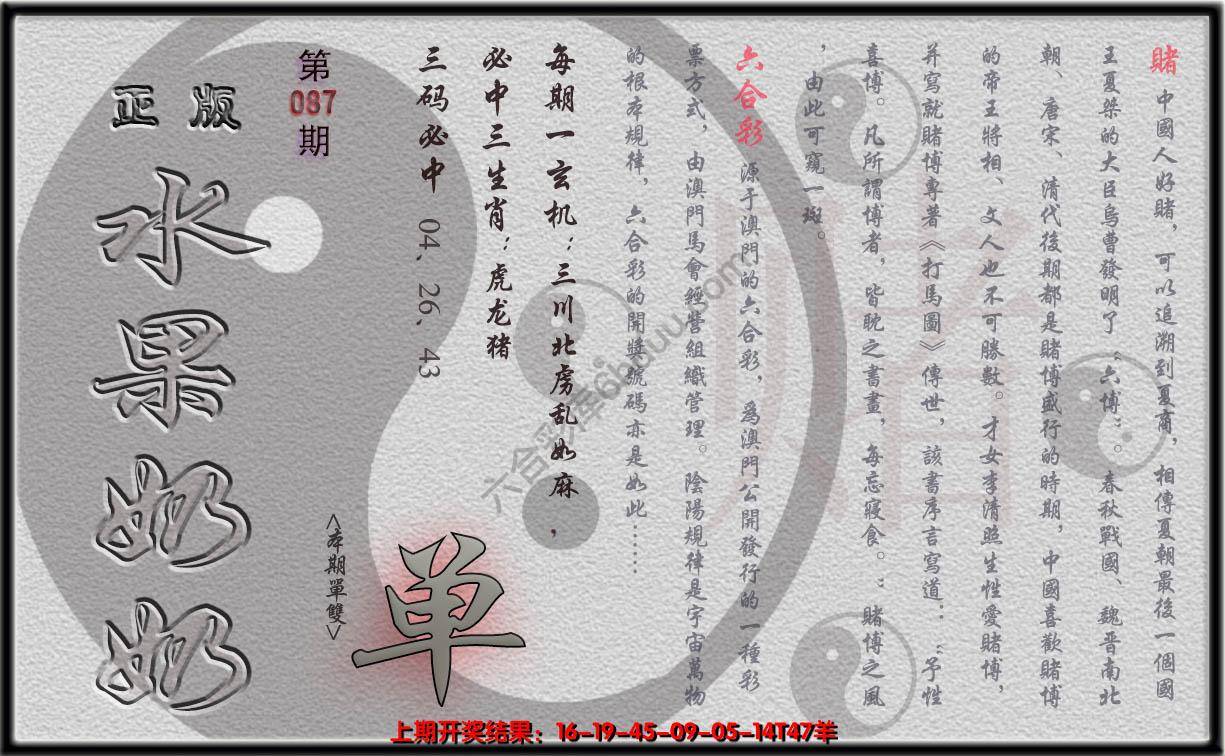 賭 中國人好賭，可以追溯到夏商，相傳夏朝最後一個國
王夏桀的大臣烏曹發明了“六博”。春秋戰國、魏晉南北
朝、唐宋、清代後期都是賭博盛行的時期，中國喜歡賭博
的帝王將相、文人也不可勝數。才女李清照生性愛賭博，
并寫就賭博專著《打馬圖》傳世，該書序言寫道：“予性
喜博。凡所謂博者，皆耽之書畫，每忘寢食。”賭博之風
，由此可窺一斑。
六合彩 源于澳門的六合彩，爲澳門公開發行的一種彩
票方式，由澳門馬會經營組織管理。陰陽規律是宇宙萬物
的根本規律，六合彩的開獎號碼亦是如此……
每期一玄机：三川北虏乱如麻，
必中三生肖：虎龙猪
三码必中 04、26、43
第087期
正版
水果奶奶
<本期單雙>
单
賭
六合彩库6huuu.com
上期开奖结果：16-19-45-09-05-14T47羊